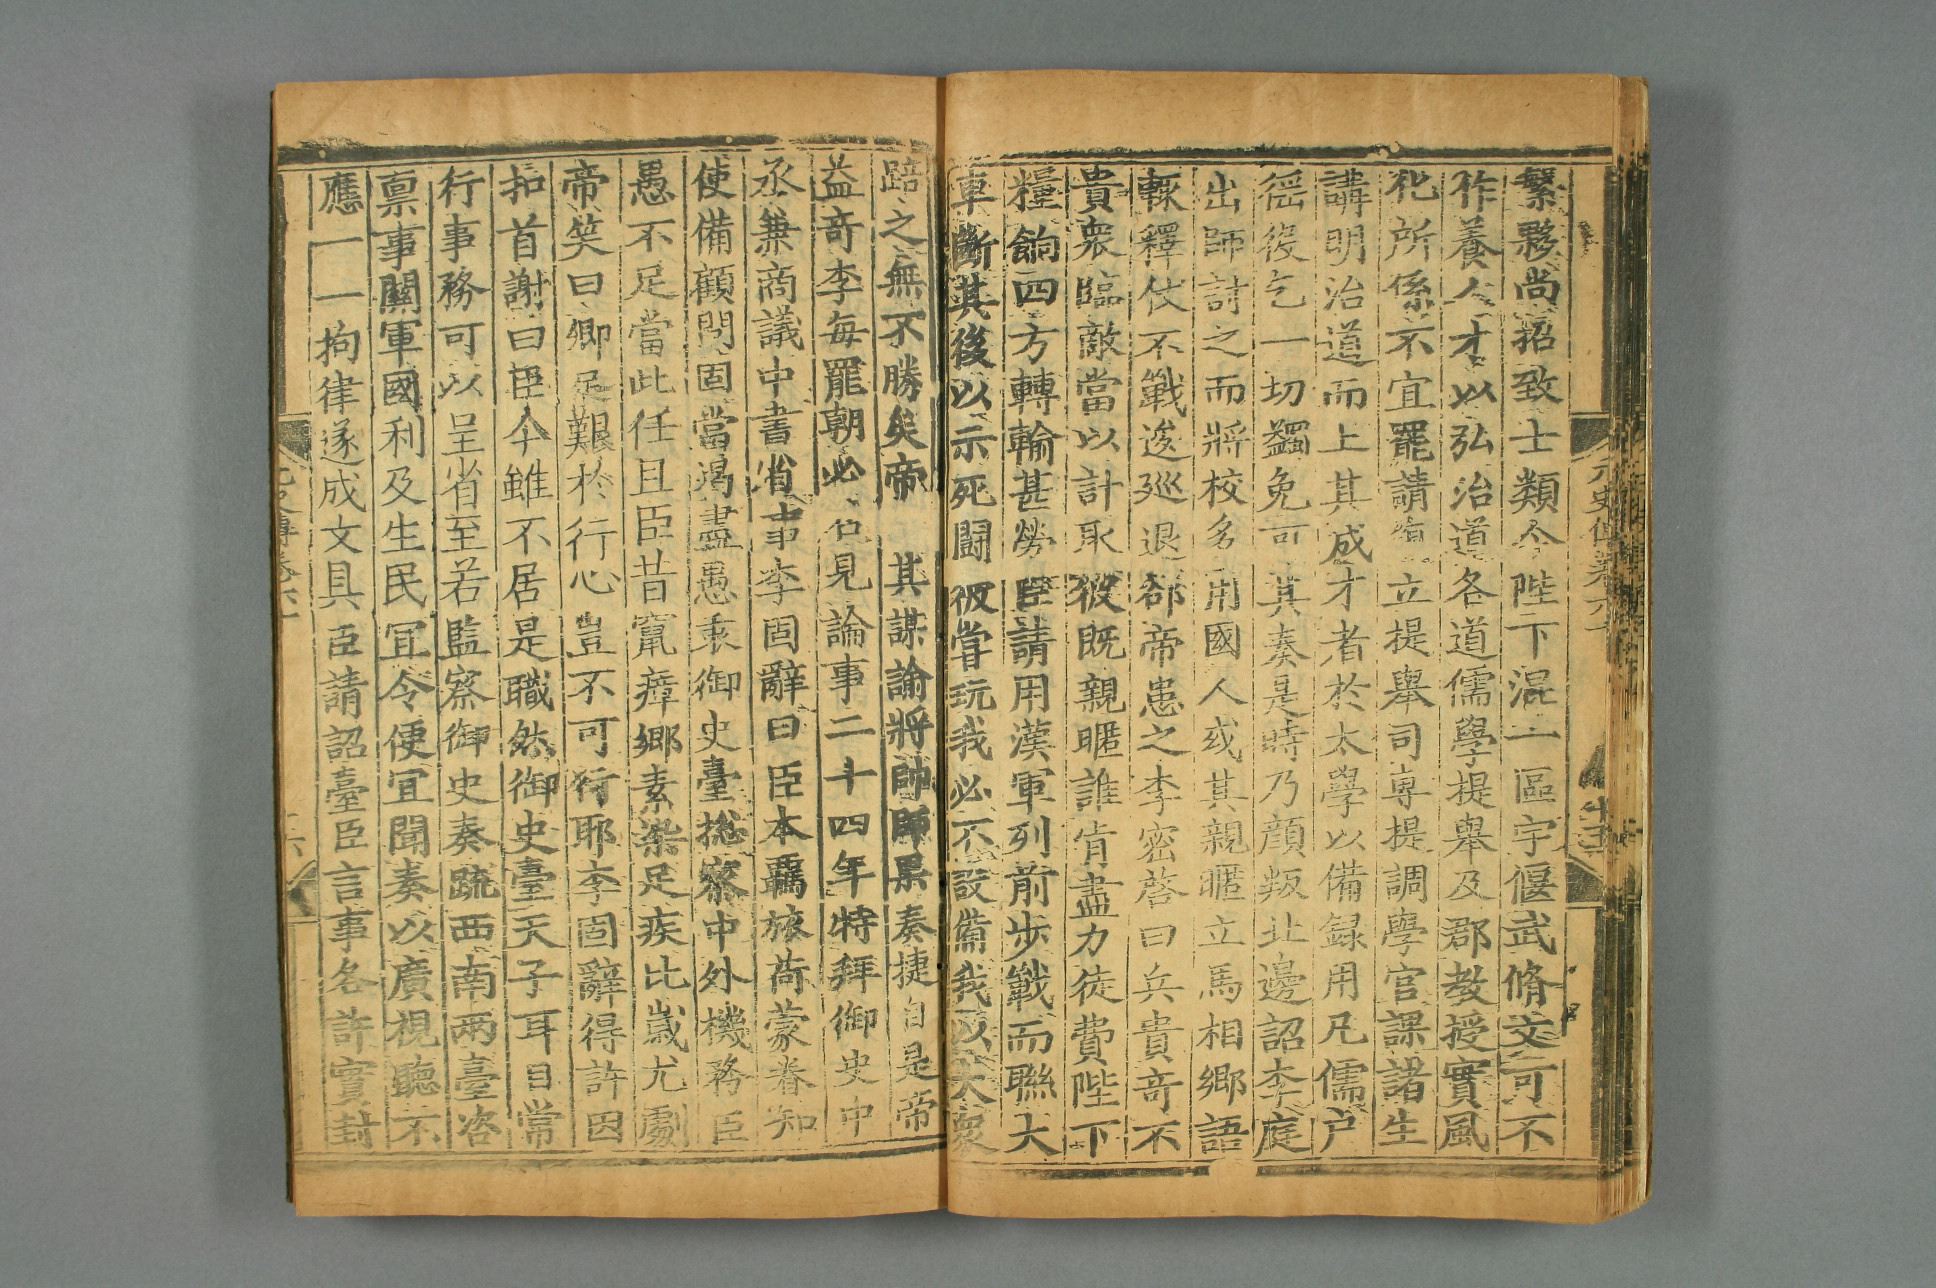 繁夥尚招致士類今陛下混一區宇偃武脩文可不
作養人才以弘治道各道儒學提舉及郡教授實風
化所係不宜罷請復立提舉司專提調學官課諸生
講明治道而上其成才者於太學以備録用凡儒户
徭役乞一切蠲免可其奏是時乃顔叛北邊詔李庭
出師討之而將校多用國人或其親暱立馬相郷語
輙釋仗不戰逡巡退郤帝患之李密啓曰兵貴奇不
貴衆臨敵當以計取彼既親暱誰肯盡力徒費陛下
糧餉四方轉輸甚勞臣請用漢軍列前步戰而聯大
車斷其後以示死鬪彼嘗玩我必不設備我以大衆
踣之無不勝矣帝 其謀諭將帥師果奏捷自是帝
益奇李每罷朝必召見論事二十四年特拜御史中
丞兼商議中書省事李固辭曰臣本羈旅荷蒙眷知
使備顧問固當竭盡愚衷御史臺總察中外機務臣
愚不足當此任且臣昔竄瘴郷素染足疾比嵗尤劇
帝笑曰卿足艱於行心豈不可行耶李固辭得許因
扣首謝曰臣今雖不居是職然御史臺天子耳目常
行事務可以呈省至若監察御史奏疏西南两臺咨
禀事關軍國利及生民冝令便冝聞奏以廣視聽不
應一一拘律遂成文具臣請詔臺臣言事各許實封
元史傳卷六十